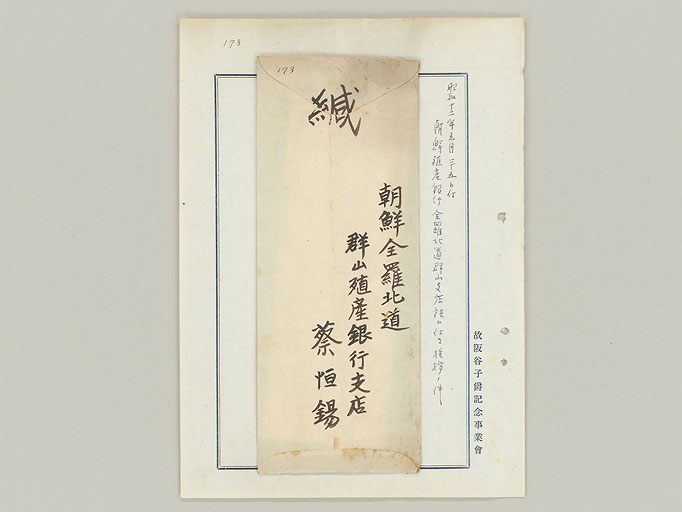 173
昭和十二年五月二十五日付
朝鮮殖産銀行全羅北道群山支店詰ニ付
挨拶ノ件
173
緘
朝鮮全羅北道
群山殖產銀行支店
蔡恒錫
故阪谷子爵記念事業會